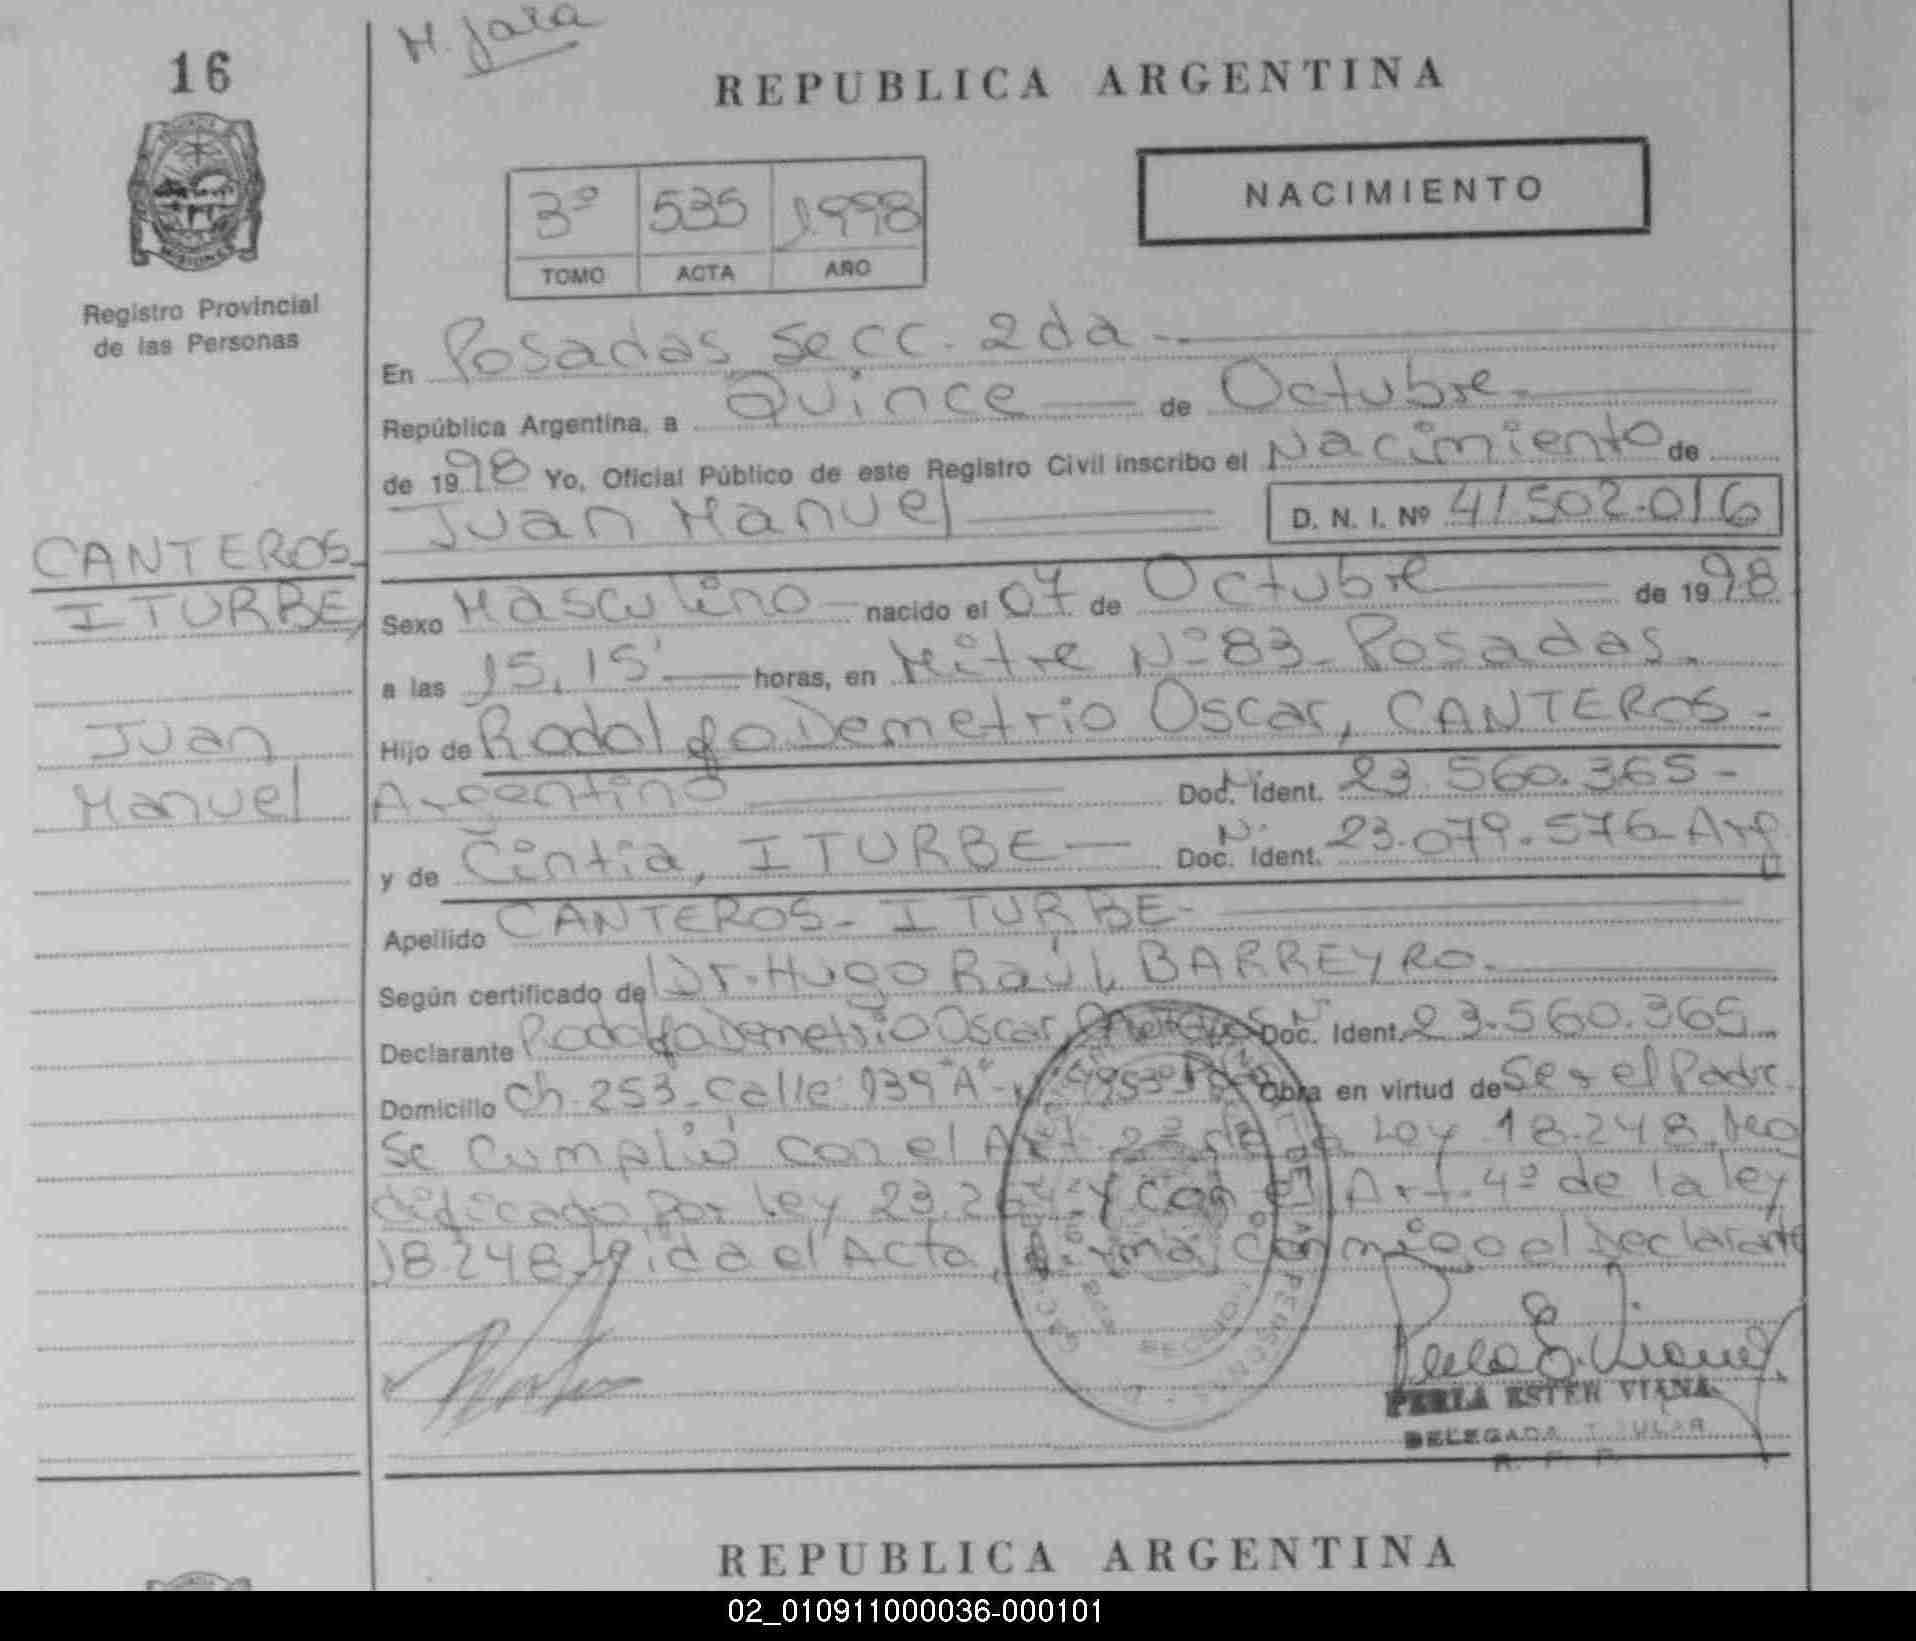 M. Jara
16
REPUBLICA ARGENTINA
NACIMIENTO
3º 535 1998
TOMO ACTA AÑO
Registro Provincial
de las Personas
En Posadas Secc. 2da
República Argentina, a Quince de Octubre
de 1998 Yo, Oficial Público de este Registro Civil inscribo el Nacimiento de
Juan Manuel D. N. I. Nº 41.502.016
CANTEROS
ITURBE,
Juan
Manuel
Sexo Masculino nacido el 07 de Octubre de 1998
a las 15,15' horas, en Mitre Nº 83 - Posadas.
Hijo de Rodolfo Demetrio Oscar, CANTEROS -
Argentino Doc. Nº Ident. 23.560.365 -
y de Cintia, ITURBE Doc. Nº Ident. 23.079.576 - Arg
Apellido CANTEROS - ITURBE -
Según certificado de Dr. Hugo Raúl, BARREYRO.
Declarante Rodolfo Demetrio Oscar Canteros Doc. Nº Ident. 23.560.365
Domicilio Ch. 253 - Calle 139 "A" Obra en virtud de Ser el Padre.
Se Cumplió con el Art. 2º de la Ley 18.248. Mo
dificado por Ley 23.264 y con el Art. 4º de la ley
18.248. Leida el Acta, firma conmigo el Declarante
PERLA ESTER VIANA
DELEGADA TITULAR
R. P. P.
REPUBLICA ARGENTINA
02_010911000036-000101